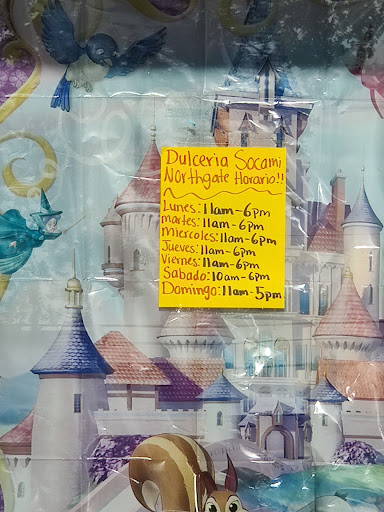 Dulceria Socami
Northgate Horario!!
Lunes: 11am-6pm
martes: 11am-6pm
miercoles: 11am-6pm
Jueves: 11am-6pm
Viernes: 11am-6pm
Sabado: 10am-6pm
Domingo: 11am-5pm